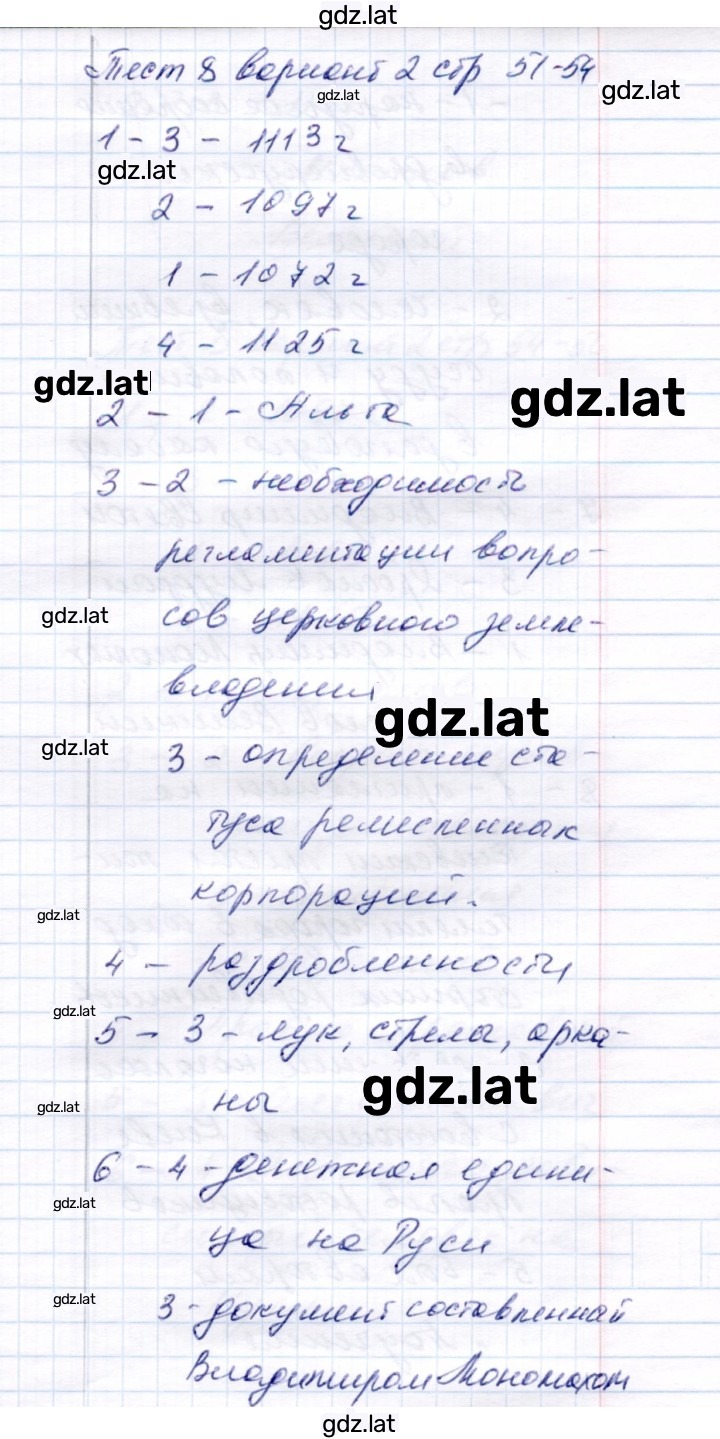 gdz.lat
Тест 8 вариант 2 стр 51-54
gdz.lat
gdz.lat
1 - 3 - 1113 г
gdz.lat
2 - 1097 г
1 - 1072 г
4 - 1125 г
gdz.lat
gdz.lat
2 - 1 - Альта
3 - 2 - необходимость
регламентации вопро-
gdz.lat
сов церковного земле-
владения
gdz.lat
gdz.lat
3 - определение ста-
туса ремисленнак
корпораций.
gdz.lat
4 - раздробленности
gdz.lat
5 - 3 - лук, стрелы, арка-
gdz.lat
ны
gdz.lat
6 - 4 - денежная едини-
gdz.lat
ца на Руси
gdz.lat
3 - документ составленнай
Владимиром Мономахом
gdz.lat